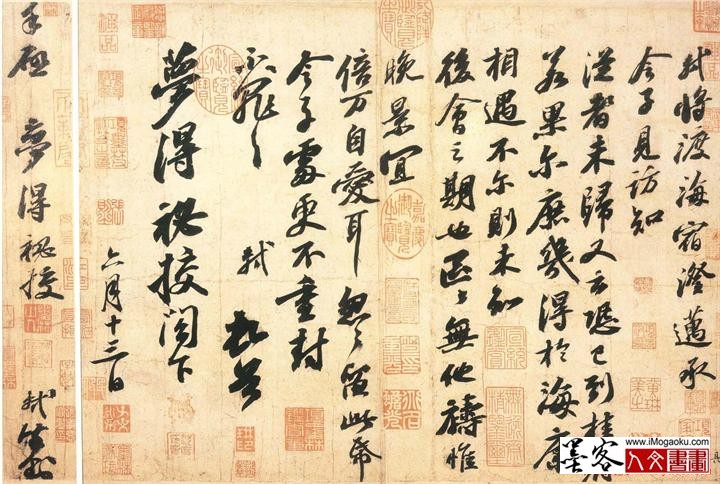 軾將渡海宿澄邁承
令子見訪知
從者未歸又云恐已到桂府
若果尔庶幾得於海康
相遇不尔則未知
後會之期也區區無他禱惟
晚景宜
倍万自愛耳忽忽留此帋
令子處更不重封
不罪不罪
軾 頓首
夢得祕校閣下
六月十三日
手啟 夢得祕校 軾封
墨客
www.iMogaoku.com
人文書畫